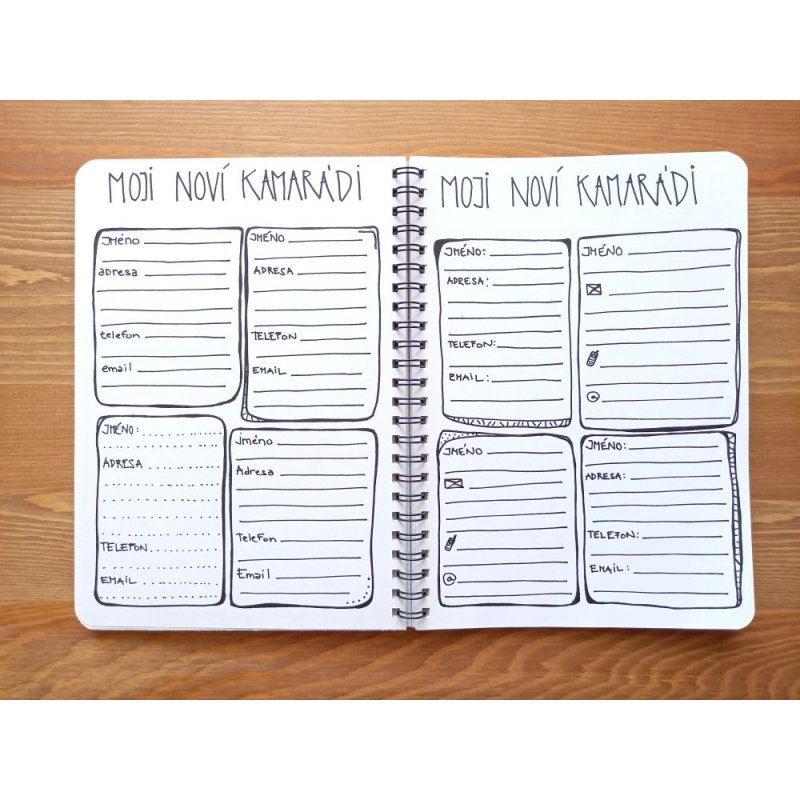 MOJI NOVÍ KAMARÁDI
Jméno
adresa
telefon
email
JMÉNO
ADRESA
TELEFON
EMAIL
JMÉNO:
ADRESA
TELEFON
EMAIL
jméno
Adresa
Telefon
Email
MOJI NOVÍ KAMARÁDI
JMÉNO:
ADRESA:
TELEFON:
EMAIL:
JMÉNO
@
JMÉNO
@
JMÉNO:
ADRESA:
TELEFON:
EMAIL: